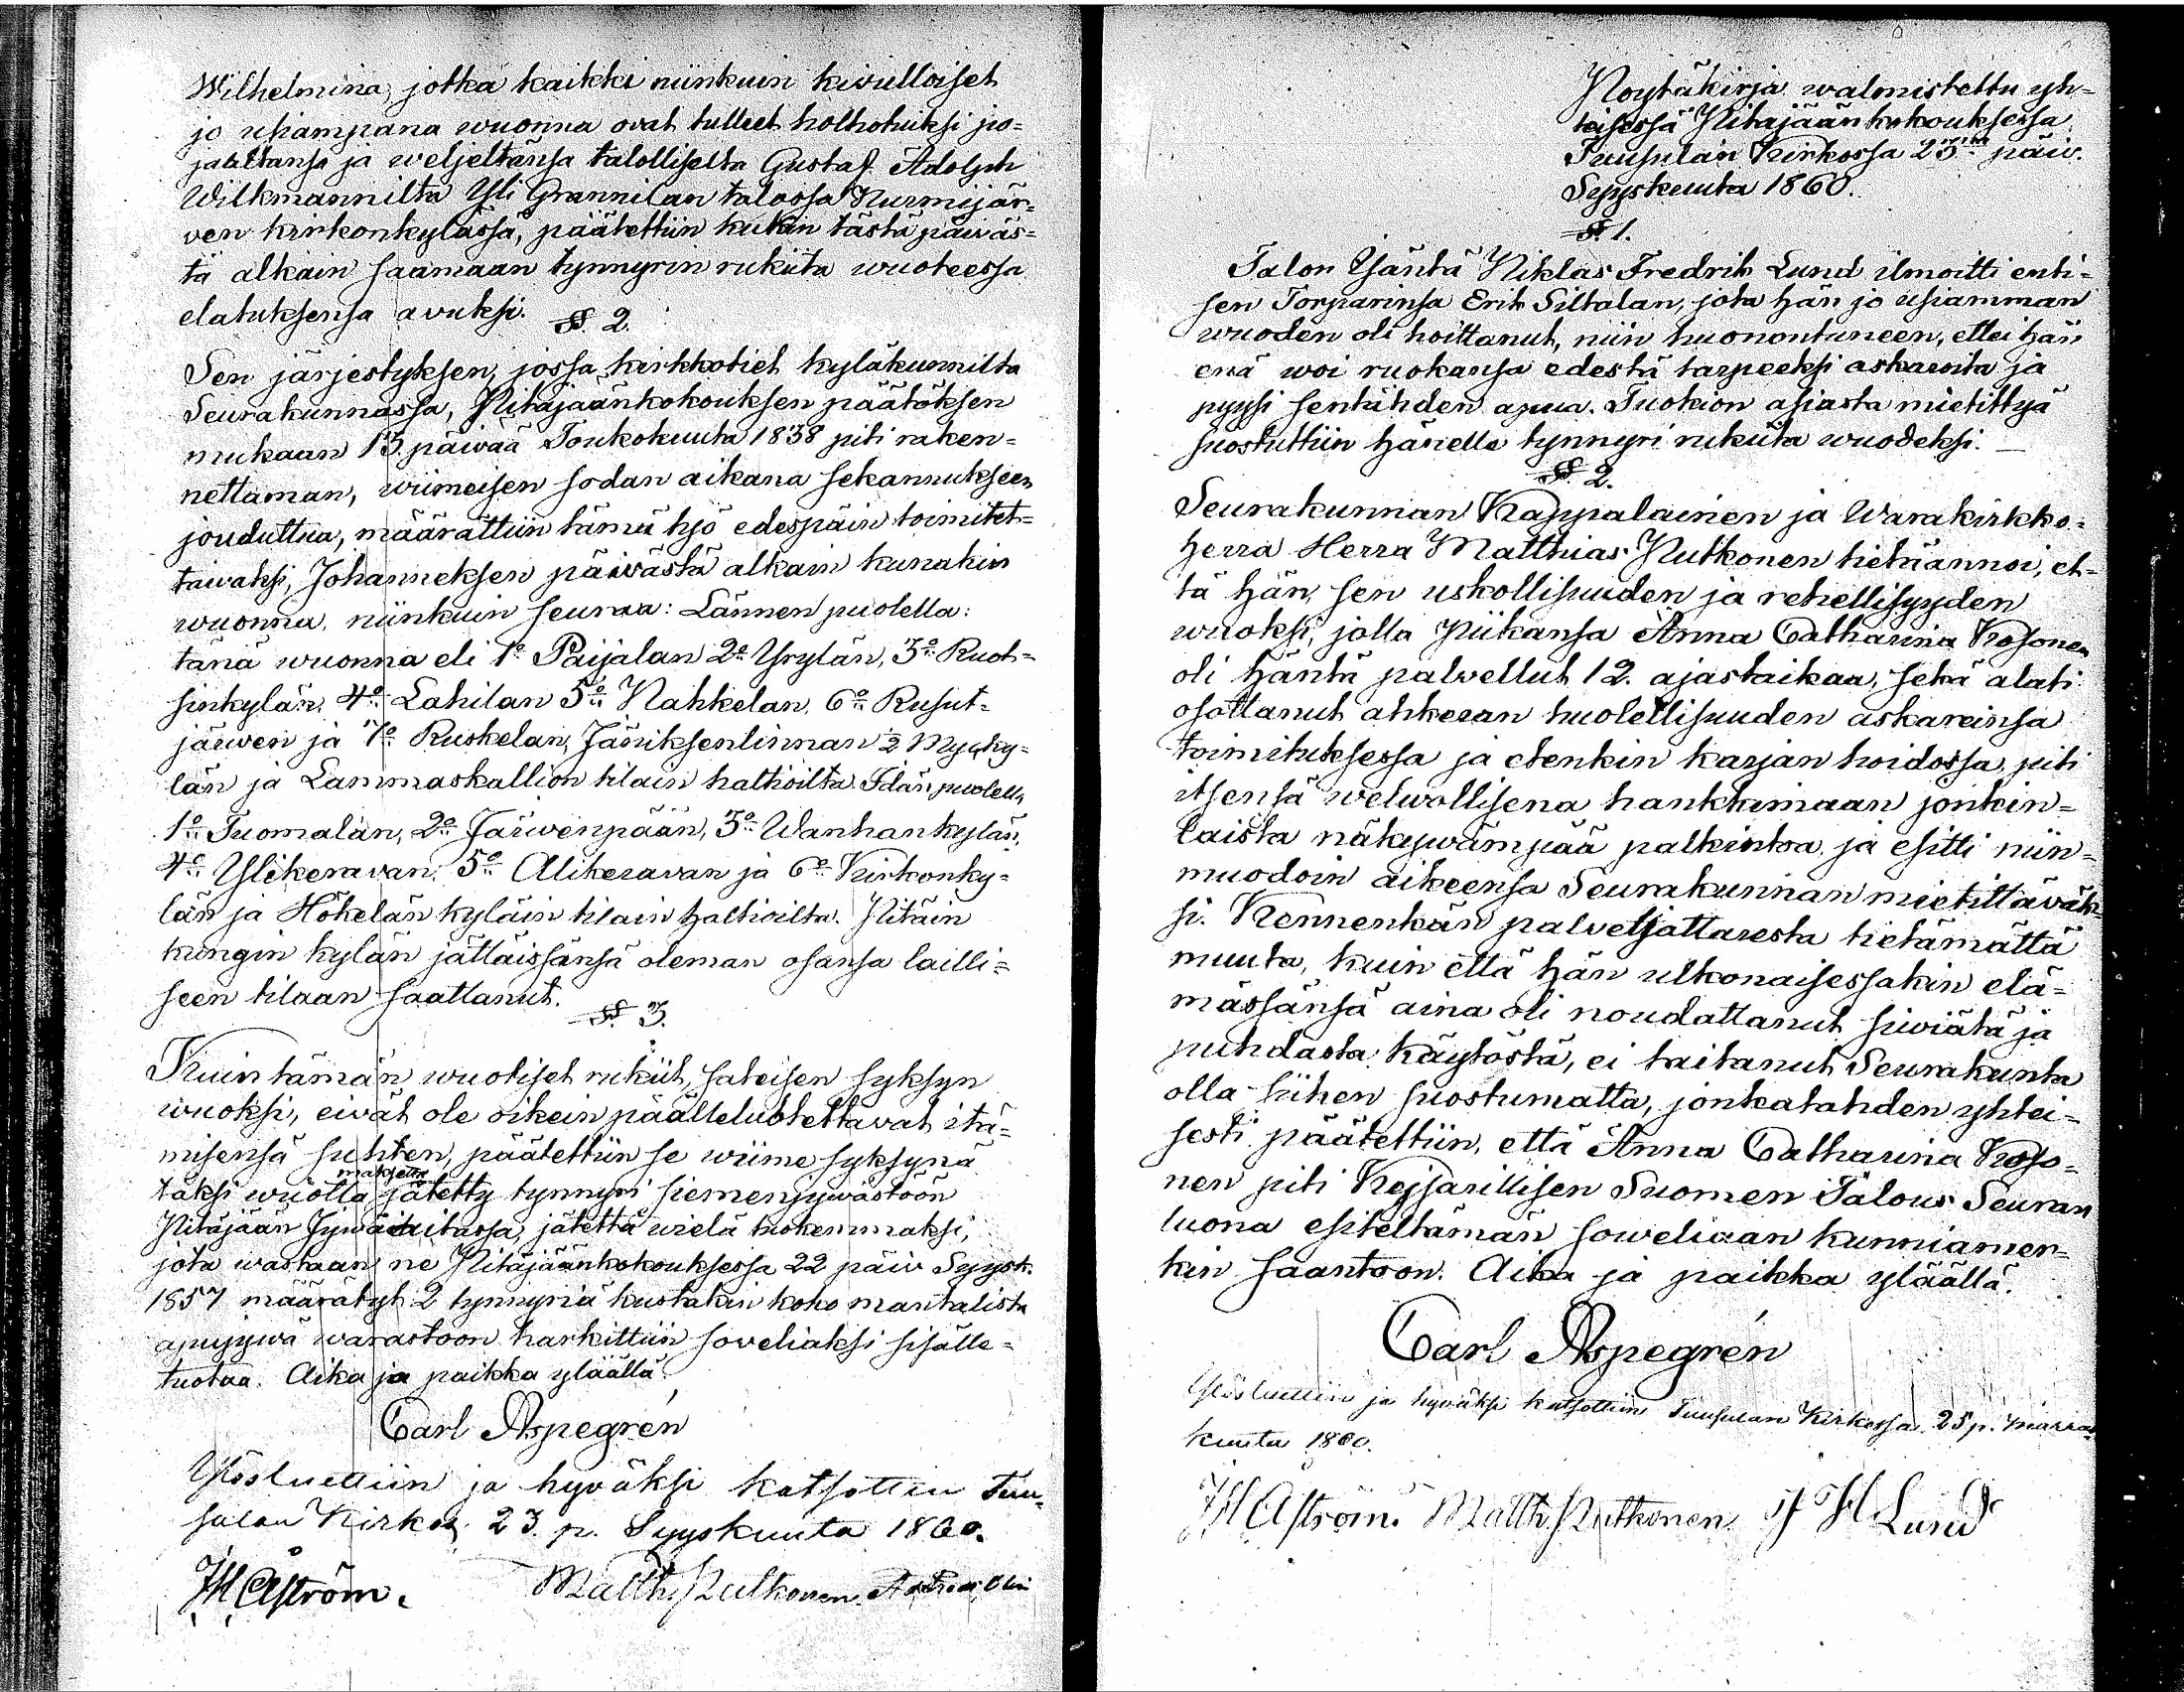 Wilhelmina, jotka kaikki niinkuin kivulloiset
jo usiampana wuonna ovat tulleet holhotuiksi po=
jaltansa ja weljeltänsä talolliselta Gustaf Adolph
Wilkmannilta Yli Grannilan talossa Nurmijär=
ven kirkonkylässä, päätettiin kukin tästä päiväs=
tä alkain saamaan tynnyrin rukiita wuoteessa
elatuksensa avuksi.
§. 2.
Sen järjestyksen, jossa kirkkotiet kyläkunnilta
Seurakunnassa, Pitäjäänkokouksen päätöksen
mukaan 13 päivää Toukokuuta 1838 piti raken=
nettaman, wiimeisen sodan aikana sekannukseen
jouduttua, määrättiin tämä työ edespäin toimitet=
tavaksi, Johanneksen päivästä alkain kunakin
wuonna, niinkuin seuraa: Lännen puolella:
tänä wuonna eli 1:o Paijalan 2:o Yrylän, 3:o Ruot=
sinkylän, 4:o Lahilan 5:o Nahkelan, 6:o Rusut=
järwen ja 7:o Ruskelan, Jäniksenlinnan 2 Myllky=
län ja Lammaskallion tilain haltioilta. Idän puolella
1:o Tuomalan, 2:o Järwenpään, 3:o Wanhankylän,
4:o Ylikeravan, 5:o Alikeravan ja 6:o Kirkonky=
län ja Hökelän kyläin tilain haltioilta. Pitäin
kungin kylän jättäissänsä oleman osansa lailli=
seen tilaan saattanut.
§. 3.
Kuin tämän wuotiset rukiit, sateisen syksyn
wuoksi, eivät ole oikein päälleluotettavat itä=
misensä suhten, päätettiin se wiime syksynä
maksetta
täksi wuotta jätetty tynnyri siemenjywästöön
Pitäjään Jywäaitassa, jätettä wielä tuokemmaksi,
jota wastaan ne Pitäjäänkokouksessa 22 päiv Syysk.
1857 määrätyt 2 tynnyriä kustakin koko mantalista
apujywä warastoon harkittiin soveliaksi sisälle=
tuotaa. Aika ja paikka yläällä.
Carl Aspegrén
Ylösluettiin ja hyväksi katsottiin Tuu=
sulan Kirkos. 23 p. Syyskuuta 1860.
JH Åström. Matth. Putkonen.
Poytäkirja walmistettu yh=
teisessä Pitäjäänkokouksessa
Tuusulan Kirkossa 23:m päiv.
Syyskuuta 1860.
§. 1.
Talon Isäntä Niklas Fredrik Lund ilmoitti enti=
sen Torparinsa Erik Siltalan, jota hän jo usiamman
wuoden oli hoittanut, niin huonontuneen, ettei hän
enä woi ruokansa edestä tarpeeksi askaroita ja
pyysi sentähden apua. Tuokion asiasta mietittyä
suostuttiin hänelle tynnyri rukiita wuodeksi.
§. 2.
Seurakunnan Kappalainen ja Warakirkko=
herra Herra Matthias Putkonen tietäännoi, et=
tä hän, sen uskollisuuden ja rehellisyyden
wuoksi, jolla Piikansa Anna Catharina Kosonen
oli häntä palvellut 12. ajastaikaa, sekä alati
osottanut ahkeran huolellisuuden askareinsa
toimituksessa ja etenkin karjan hoidossa, piti
itsensä welwollisena hankkimaan jonkin=
laista näkywämpää palkintoa ja esitti niin=
muodoin aikeensa Seurakunnan mietittäväk=
si. Kennenkän palveljattaresta tietämättä
muuta, kuin että hän ulkonaisessakin elä=
mässänsä aina oli noudattanut siwiätä ja
puhdasta käytöstä, ei taitanut Seurakunta
olla siihen suostumatta, jonkatahden yhtei=
sesti päätettiin, että Anna Catharina Koso=
nen piti Kejsarillisen Suomen Talous Seuran
luona esiteltämän soweliaan kunniamer=
kin saantoon. Aika ja paikka yläällä.
Carl Aspegrén
Ylösluettiin ja hyväksi katsottiin Tuusulan Kirkossa 25 p. Marras
kuuta 1860.
JH Åström. Matth. Putkonen. H Lund